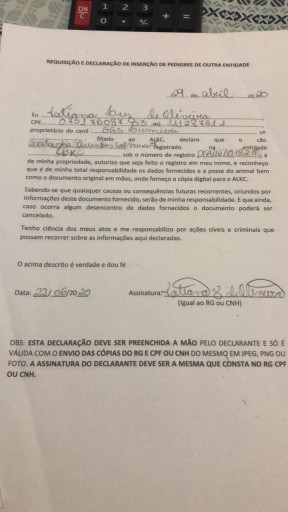 ON/C 1 2 3
0 . + =
REQUISIÇÃO E DECLARAÇÃO DE INSERÇÃO DE PEDIGREE DE OUTRA ENTIDADE
29, de abril 2020
Eu Tatiana de Oliveira
CPF RG
proprietário do canil
filiado ao ALKC, declaro que o cão
registrado na entidade
sob o número de registro é
de minha propriedade, autorizo que seja feito o registro em meu nome, e reconheço
que é de minha total responsabilidade os dados fornecidos e a posse do animal bem
como o documento original em mãos, onde forneço a cópia digital para o ALKC.
Sabendo-se que quaisquer causas ou consequências futuras recorrentes, oriundos por
informações deste documento fornecido, serão de minha responsabilidade. E que ainda,
caso ocorra algum desencontro de dados fornecidos o documento poderá ser
cancelado.
Tenho ciência dos meus atos e me responsabilizo por ações cíveis e criminais que
possam recorrer sobre as informações aqui declaradas.
O acima descrito é verdade e dou fé
Data: 22/06/2020 Assinatura:
(Igual ao RG ou CNH)
OBS: ESTA DECLARAÇÃO DEVE SER PREENCHIDA A MÃO PELO DECLARANTE E SÓ É
VÁLIDA COM O ENVIO DAS CÓPIAS DO RG E CPF OU CNH DO MESMO EM JPEG, PNG OU
FOTO. A ASSINATURA DO DECLARANTE DEVE SER A MESMA QUE CONSTA NO RG CPF
OU CNH.